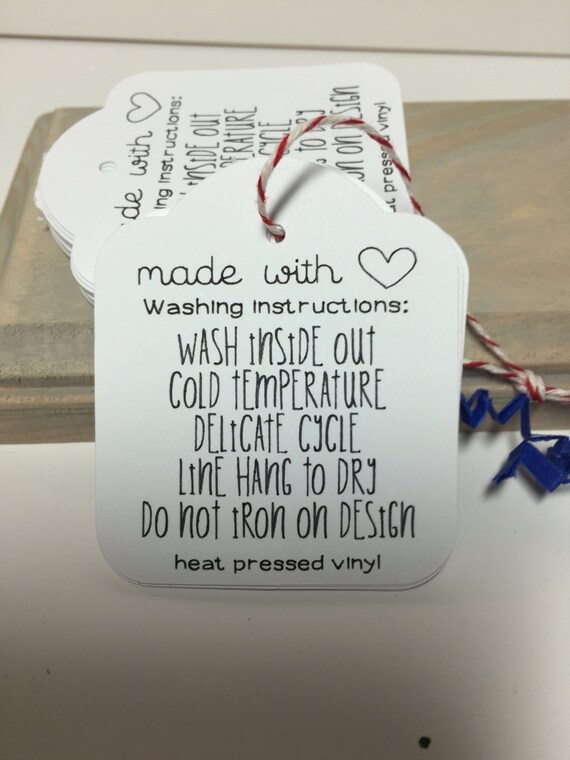 made with
Washing Instructions:
WASH INSIDE OUT
COLD TEMPERATURE
DELICATE CYCLE
LINE HANG to DRY
DO not IRON on DESIGN
heat pressed vinyl
de with
ing Instructions:
INSIDE OUT
PERATURE
CYCLE
to DRY
on DESIGN
at pressed vinyl